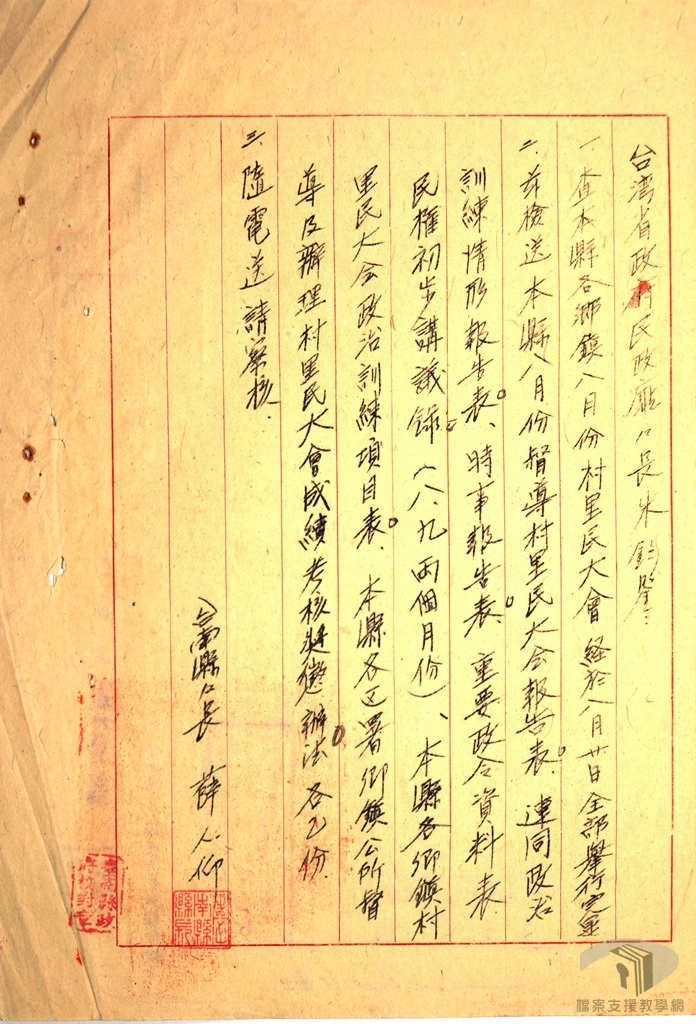 台湾省政府民政廳々長朱鈞鑒：
一、查本縣各鄉鎮八月份村里民大會經於八月廿日全部舉行完畢
二、茲檢送本縣八月份督導村里民大会報告表、連同政治
訓練情形報告表、時事報告表、重要政令資料表、
民權初步講議錄（八、九兩個月份）、本縣各鄉鎮村
里民大会政治訓練項目表、本縣各区署鄉鎮公所督
導及辦理村里民大會成績考核獎懲辦法各乙份.
三、隨電送請察核.
台南縣々長 薛人仰
檔案支援教學網